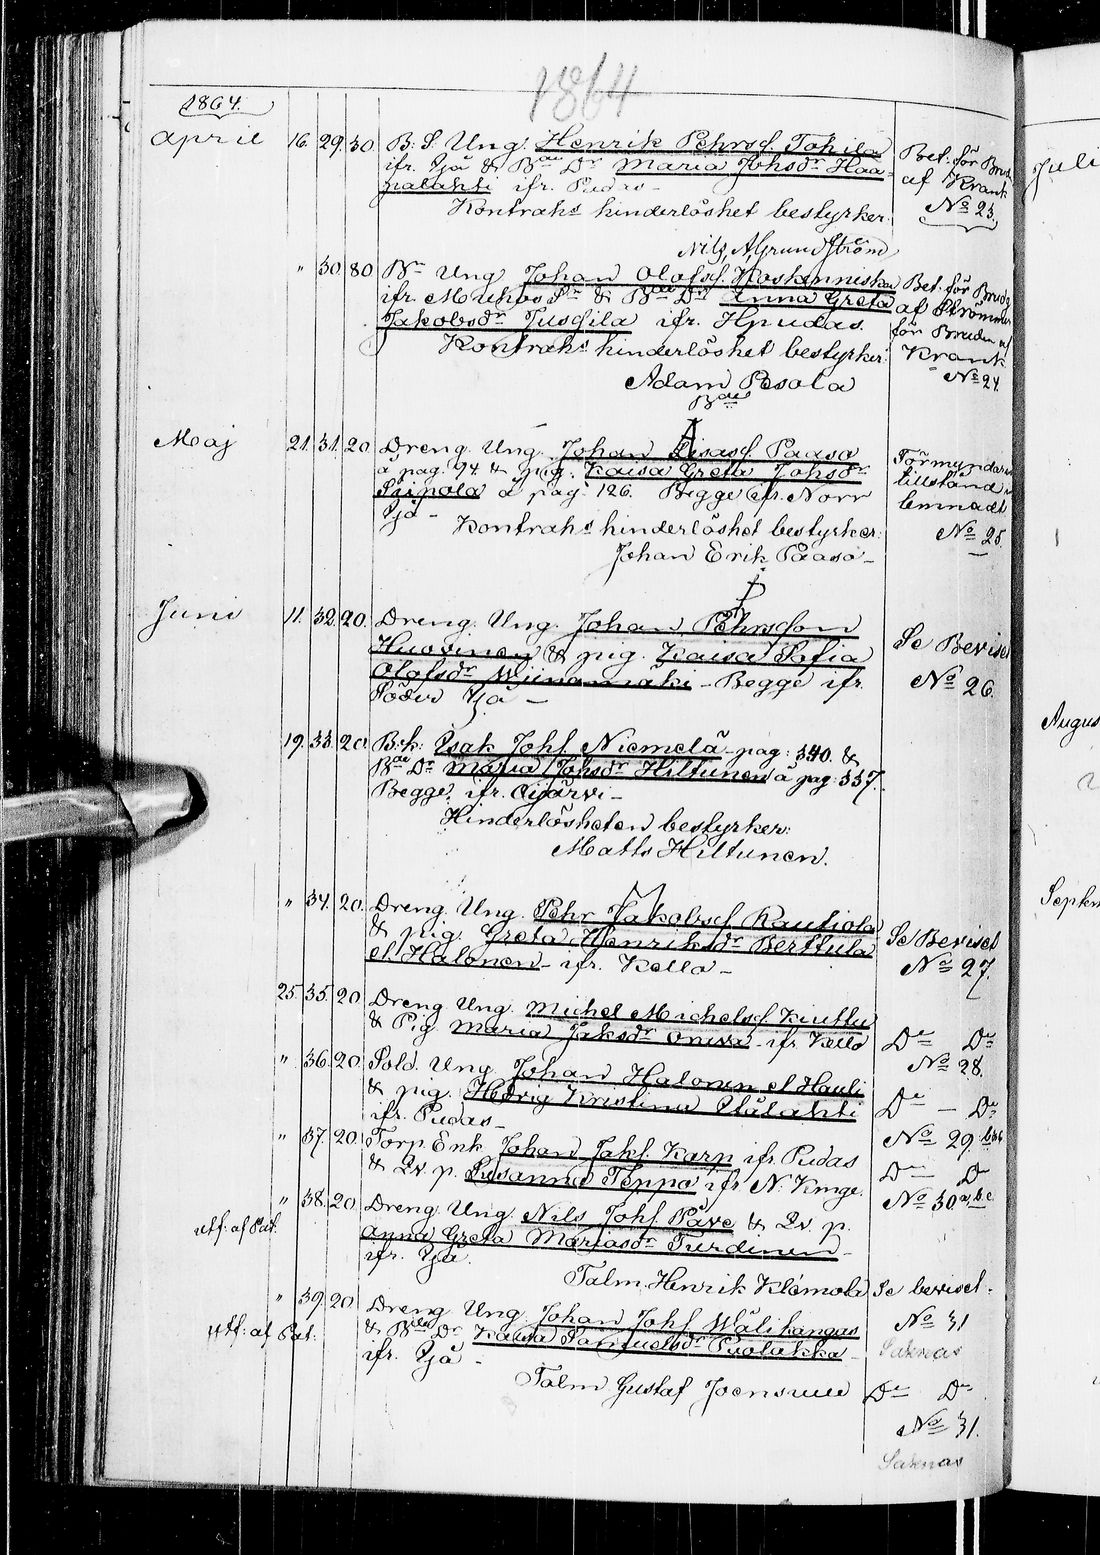 1864
1864.
April 16. 29. 30. B. S. Ung. Henrik Pehrsf. Tohila
ifr. Ijå & Bde Dr Maria Johsdr Haa-
palahti ifr. Pudas -
Kontrahs hinderlöshet bestyrker:
Nils A. Grundström
Bet. för Brud.
af Krank
No 23.
" 30. 80 Bn Ung Johan Olofsf. Koskenniska
ifr. Muhos Sn & Bde Dr Anna Greta
Jakobsdr Jussila ifr. Hpudas.
Kontrahs hinderlöshet bestyrker:
Adam Pesola
Bde
Bet. för Brudg
af Strömmer
för Bruden af
Krank
No 24.
Maj 21. 31. 20. Dreng. Ung. Johan Esiasf Paaso
å pag. 94 & pig. Kaisa Greta Johsdr
Seipola å pag. 126. Begge ifr. Norr
Ijå -
Kontrahs hinderlöshet bestyrker:
Johan Erik Paaso -
Förmyndare
tillstånd
lemnadt
No 25.
Juni 11. 32. 20. Dreng. Ung. Johan Pehrsson
Huovinen & pig. Kaisa Sofia
Olofsdr Wiinamäki - Begge ifr.
Söder Ijå -
Se Beviset
No 26.
19. 33. 20. B.k: Isak Johs. Niemelä - pag: 340. &
Bde Dr Maria Johsdr Hiltunen å pag: 337.
Begge. ifr. Oijärvi -
Hinderlösheten bestyrker:
Matts Hiltunen.
" 34. 20. Dreng. Ung. Pehr Jakobsf Rautiola
& pig. Greta Henriksdr Berttula
el Halonen - ifr. Kello -
Se Beviset
No 27.
25. 35. 20. Dreng Ung. Michel Michelsf Kiuttu
& Pig. Maria Jaksdr Onera - ifr Kello
Do Do
No 28.
" 36. 20. Sold. Ung. Johan Halonen el Hauli
& pig. Hedvig Kristina Stålahti
ifr. Pudas -
Do - Do
No 29.
" 37. 20. Torp. Enk Johan Jakf. Karp ifr. Pudas
& Qv. p. Susanna Teppo ifr N. Kmge.
Do Do
No 30. a,b,c
" 38. 20. Dreng. Ung. Nils Johf. Pave & Qv. p.
utf: af Pat.
Anna Greta Mariasdr Turdinen -
ifr. Ijå.
Talm. Henrik Klemola
Se beviset.
No 31
Saknas
" 39. 20 Dreng. Ung. Johan Johf. Wälikangas
Utf: af Pat:
& Bde Dr Kaisa Samuelsdr Puolakka -
ifr. Ijå -
Talm Gustaf Joensuu
Do Do
No 31.
Saknas
Juli
Augus
Septem